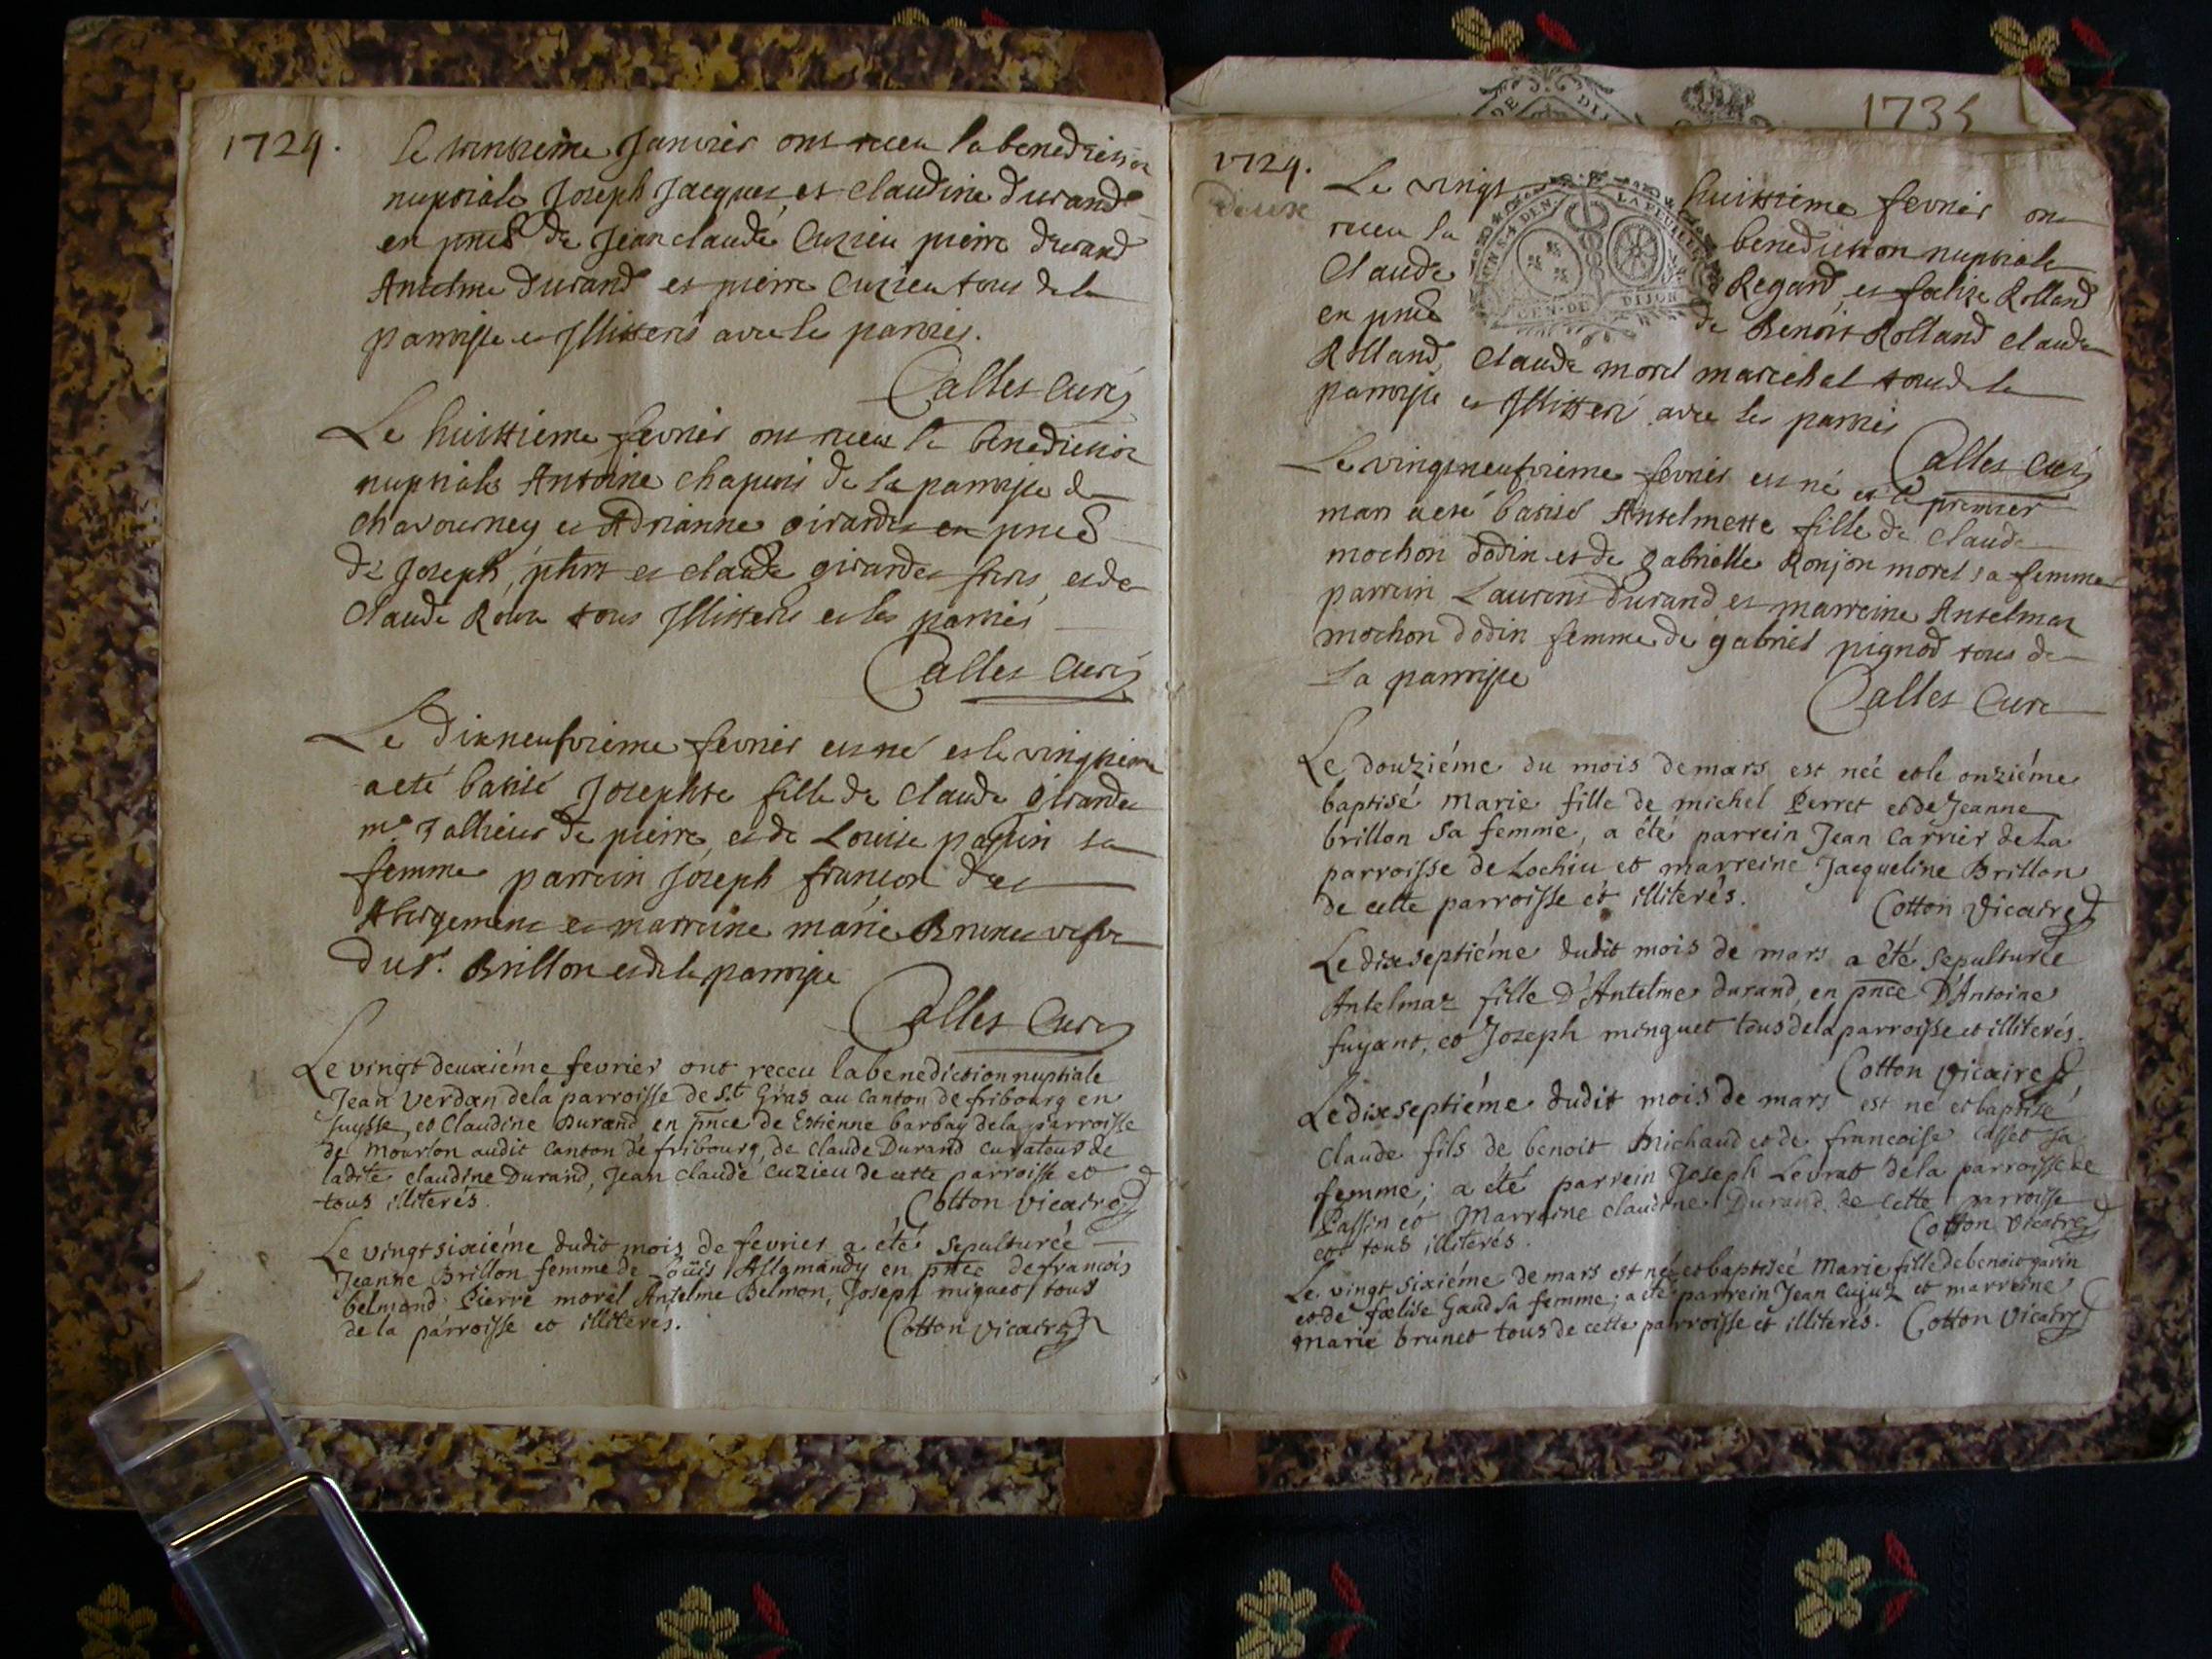 1724.
Le trentieme Janvier ont receu la benediction
nuptiale Joseph Jacques et Claudine durand
en pnce de Jean claude Cuzieu pierre durand
Antelme durand et pierre Cuzieu tous de la
parroisse et Illitteré avec les parties.
Calles Curé
Le huittieme fevrier ont receu la benediction
nuptiale Antoine Chapuis de la parroisse de
Chavourney et Adrianne girardet en pnce
de Joseph, et claude girardet freres, et de
Claude tous Illitteres et les parties
Calles Curé
Le dixneufvieme fevrier est né et le vingtieme
a eté batisé Josephte fille de Claude girardet
me Tallieur de pierre, et de Louise passin sa
femme parrein Joseph françon
Abergement et marreine marie Brunet vefve
du sr. Brillon et de la parroisse
Calles Curé
Le vingt deuxiéme fevrier ont receu la benediction nuptiale
Jean Verdan de la parroisse de St Gras au Canton de fribourg en
suysse, et Claudine Durand en pnce de Estienne barbay de la parroisse
de Mourlon audit Canton de fribourg, de Claude Durand Curateur de
ladite Claudine Durand, Jean Claude Cuzieu de cette parroisse et
tous illiterés.
Cotton Vicaire
Le vingt sixiéme dudit mois de fevrier a été sepulturée
Jeanne Brillon femme de Loüis Allamandy en pnce de francois
belmond Pierre morel Antelme Belmon, Joseph miguet tous
de la parroisse et illiterés.
Cotton Vicaire
1735
1724.
deux
UN S. 4 DEN. LA FEUILLE
GEN. DE DIJON
Le vingt huittieme fevrier ont
receu la benediction nuptiale
Claude Regard et foelize Rolland
en pnce de Benoit Rolland claude
Rolland, Claude morel marechal tous de la
parroisse et Illitteré avec les parties
Calles Curé
Le vingtneufvieme fevrier est né et le premier
mars a eté batisé Antelmette fille de Claude
mochon dodin et de gabrielle Ronjon morel sa femme
parrein Laurent durand et marreine Antelmaz
mochon dodin femme de gabriel pignod tous de
La parroisse
Calles Curé
Le douziéme du mois de mars est née et le onziéme
baptisé Marie fille de michel Perret et de Jeanne
brillon sa femme, a été parrein Jean Carrier de La
parroisse de Lochieu et marreine Jacqueline Brillon
de cette parroisse et illiterés.
Cotton Vicaire
Le dixseptiéme dudit mois de mars a été sepulturée
Antelmaz fille D'Antelme durand, en pnce D'Antoine
fuyant, et Joseph minguet tous de la parroisse et illiterés.
Cotton Vicaire
Le dixseptiéme dudit mois de mars est né et baptisé
Claude fils de benoit Michaud et de francoise Casset sa
femme; a été parrein Joseph Levrat de la parroisse de
Passin et Marreine Claudine Durand de cette parroisse
et tous illiterés.
Cotton Vicaire
Le vingt sixiéme de mars est née et baptiséé Marie fille de benoit garin
et de foelise Gaud sa femme; a été parrein Jean Cujuz et marreine
Marie brunet tous de cette parroisse et illiterés. Cotton Vicaire